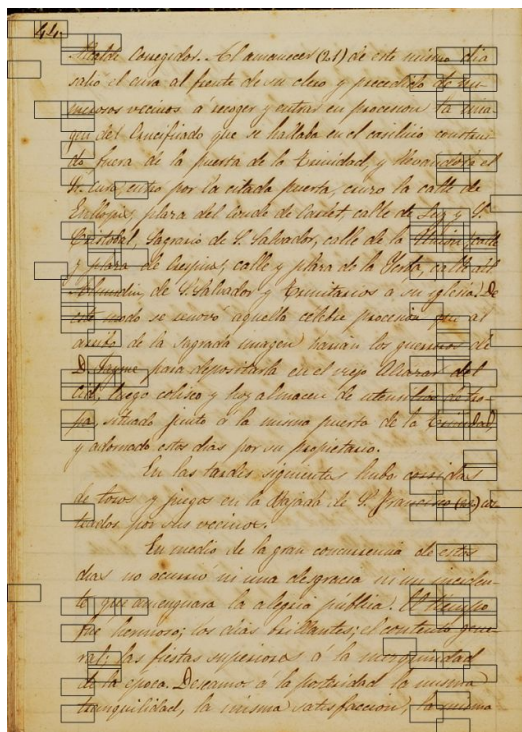 44.
Alcalde Corregidor. Al amanecer (21) de este mismo dia
salió el cura al frente de su clero y precedido de nu-
merosos vecinos á recoger y entrar en procesion la imá-
gen del Crucificado que se hallaba en el casilicio construi-
do fuera de la puerta de la Trinidad, y llevandolo el
Sr. cura, entró por la citada puerta, cruzó la calle de
plaza del Conde de Carlet calle de y S.
Cristobal, Sagrario de S. Salvador, calle de la Union, parte
y plaza de Crespins, calle y plaza de la Yerba, calle del
Almudin, de S. Salvador y Trinitarios a su iglesia. De
este modo se renovó aquella célebre procesion que al
arribo de la sagrada imagen harian los guerreros de
D. Jayme para depositarla en el viejo Alcazar del
Cid, luego coliseo y hoy almacen de utensilios de tro-
pa, situado junto á la misma puerta de la Trinidad
y adornado estos dias por su propietario.
En las tardes siguientes hubo corridas
de toros y juegos en la Bajada de S. Francisco (22) cos-
teados por sus vecinos.
En medio de la gran concurrencia de estos
dias no ocurrió ni una desgracia ni un inciden-
te que amenguara la alegria pública. El tiempo
fue hermoso; los dias brillantes; el contento gene-
ral; las fiestas superiores á la mezquindad
de la epoca. Deseamos á la posteridad la misma
tranquilidad, la misma satisfaccion, la misma